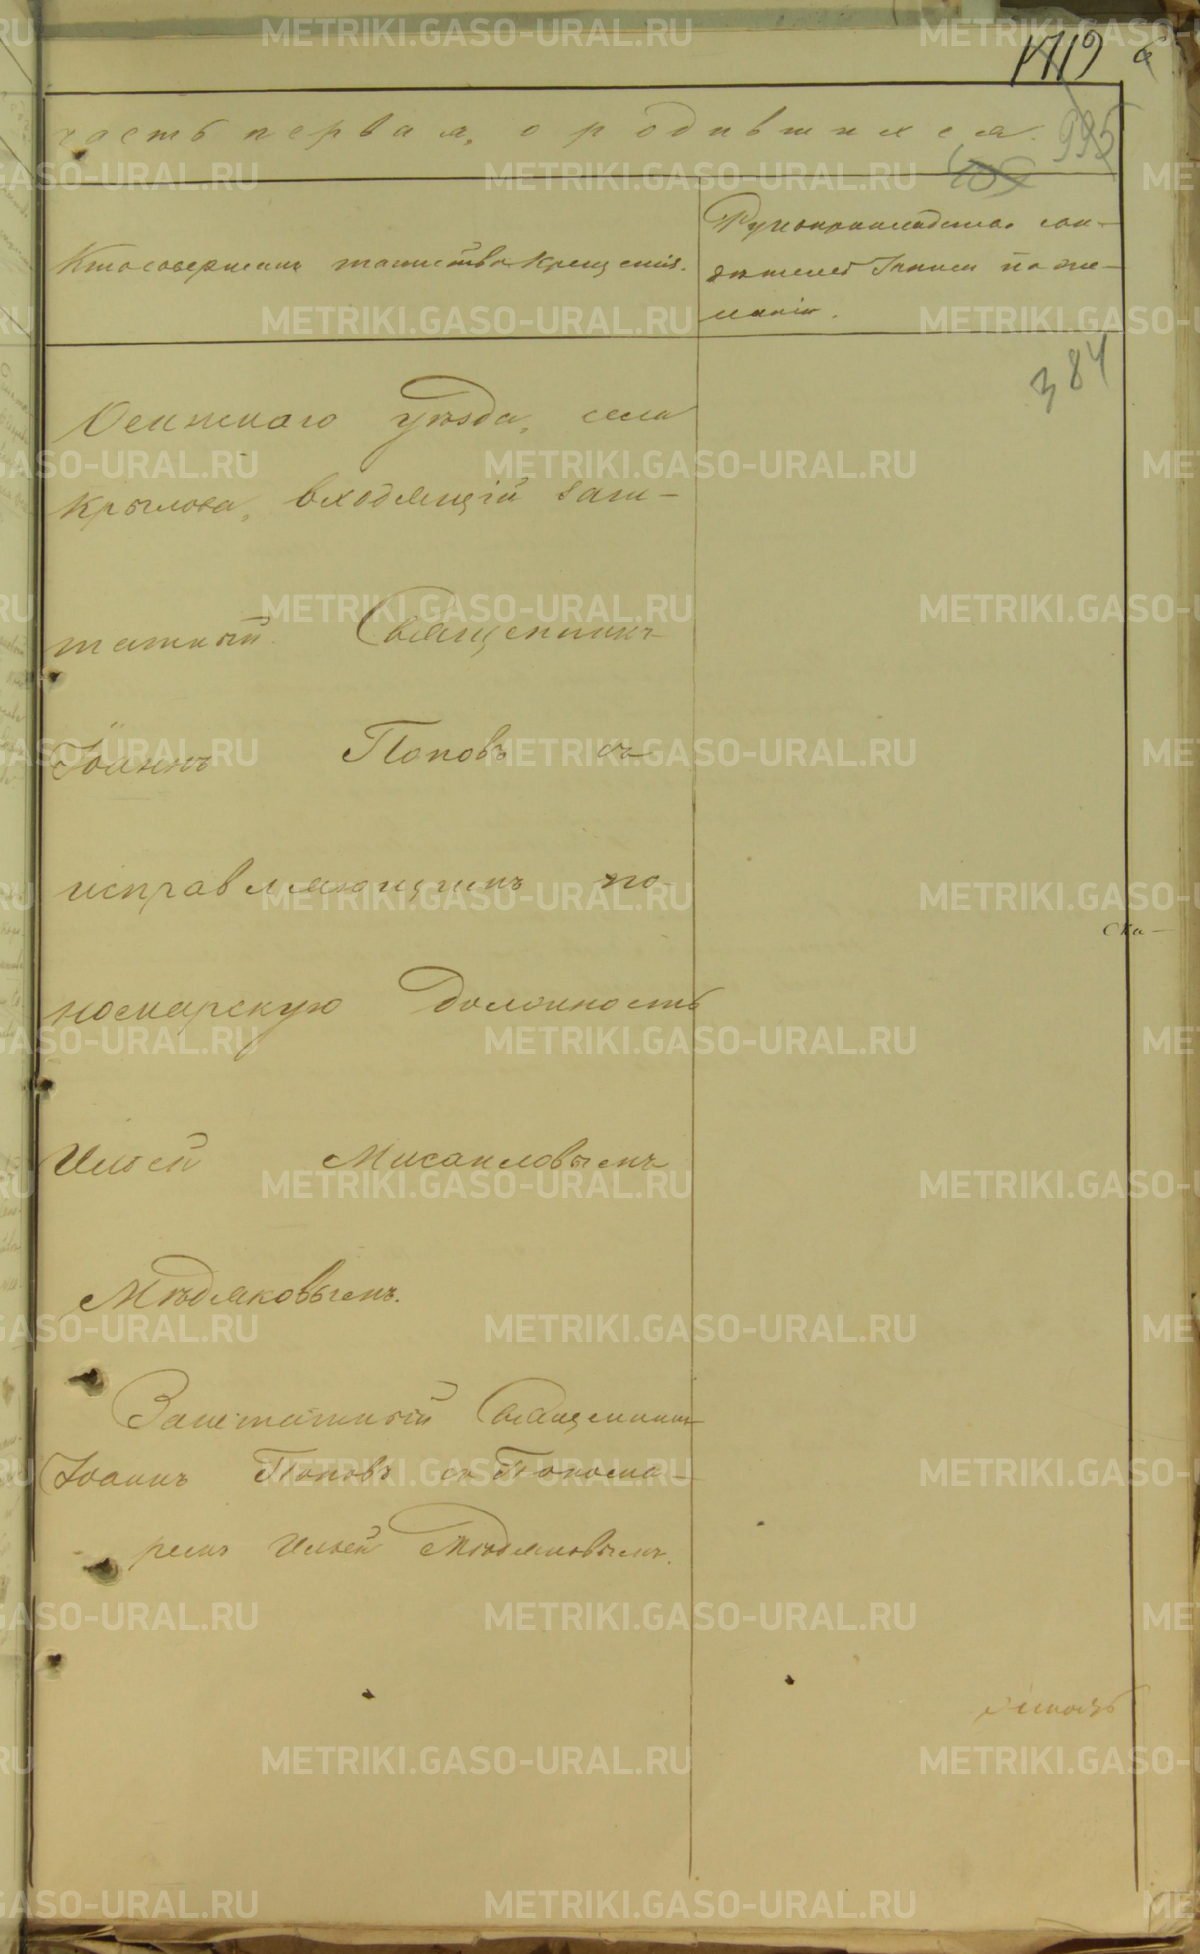 1719
часть первая, о родившихся.
995
Кто совершалъ таинство крещенія.
Рукоприкладство сви-
дѣтелей записи по же-
ланію.
384
Осинскаго уѣзда, села
Крылова, входящій заш-
татный Священникъ
Іоаннъ Поповъ съ
исправляющимъ по-
номарскую должность
Ильей Мисаиловымъ
Мѣдяковымъ.
Заштатный Священникъ
Іоаннъ Поповъ съ Понома-
ремъ Ильей Мѣдяковымъ.
METRIKI.GASO-URAL.RU